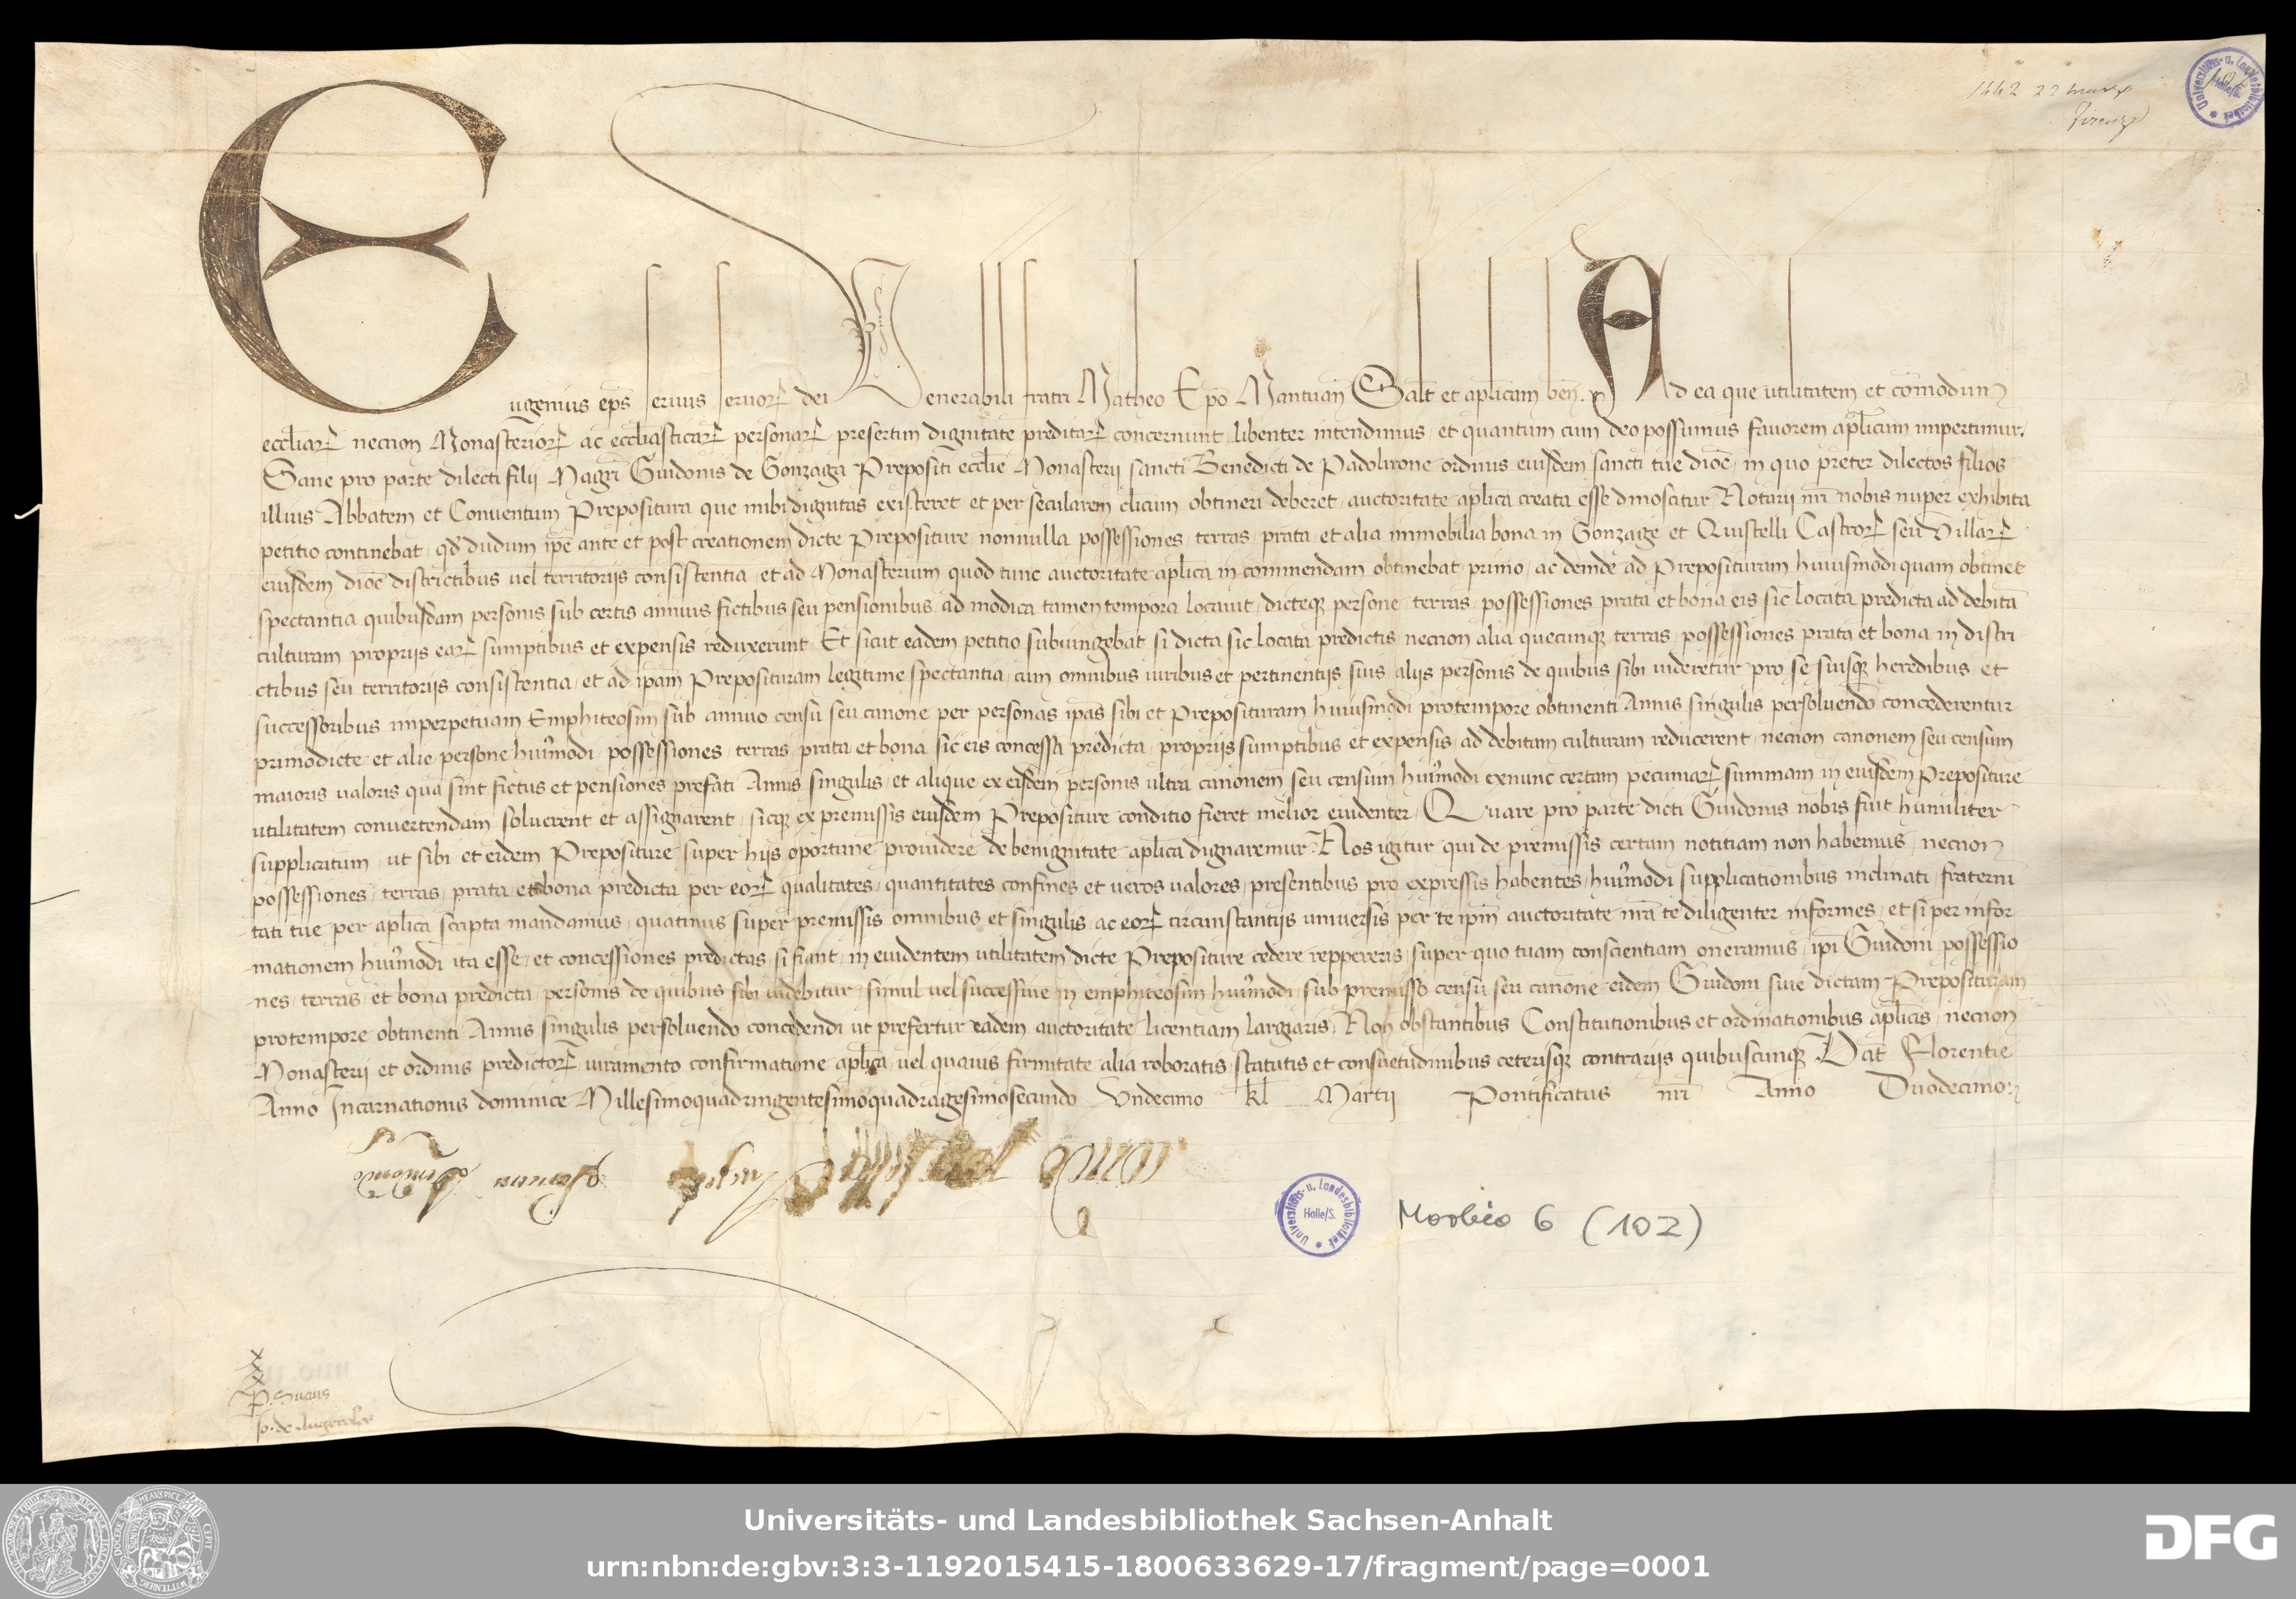 1442 22 marz
Firenze
Eugenius ep̄s servus servoꝝ dei Venerabili fratri Matheo Ep̄o Mantuan̄ Salt̄ et aplicam ben̄. Ad ea que utilitatem et com̄odum
eccl̄iaꝝ necnon Monasterioꝝ ac eccl̄iasticaꝝ personaꝝ presertim dignitate preditaꝝ concernunt libenter intendimus, et quantum cum deo possumus favorem apl̄icum impertimur.
Sane pro parte dilecti filij Magr̄i Guidonis de Gonzaga Prepositi eccl̄ie Monasterij sancti Benedicti de Padolirone ordinis eiusdem sancti tue dioc̄, in quo preter dilectos filios
illius Abbatem et Conventum Prepositura que inibi dignitas existeret et per secularem cl̄icum obtineri deberet, auctoritate apl̄ica creata esse dinoscitur, Notarij nr̄i nobis nuper exhibita
petitio continebat, qd̄ dudum ip̄e ante et post creationem dicte Prepositure nonnulla possessiones, terras, prata, et alia immobilia bona in Gonzaige et Quistelli Castroꝝ seu Villaꝝ
eiusdem dioc̄ districtibus vel territorijs consistentia, et ad Monasterium quod tunc auctoritate apl̄ica in commendam obtinebat primo, ac deinde ad Preposituram huiusmodi quam obtinet
spectantia quibusdam personis sub certis annuis fictibus seu pensionibus ad modica tamen tempora locavit, dicteqꝫ persone, terras, possessiones prata et bona eis sic locata predicta ad debitā
culturam proprijs eaꝝ sumptibus et expensis reduxerunt, Et sicut eadem petitio subiungebat si dicta sic locata predictis necnon alia quecunqꝫ terras, possessiones prata et bona in distri
ctibus seu territorijs consistentia, et ad ip̄am Preposituram legitime spectantia, cum omnibus iuribus et pertinentijs suis alijs personis de quibus sibi videretur pro se suisqꝫ heredibus et
successoribus imperpetuam Emphiteosim sub annuo censu seu canone per personas ip̄as sibi et Preposituram huiusmodi protempore obtinenti Annis singulis persolvendo concederentur
primodicte et alie persone huiu̓modi, possessiones, terras, prata et bona sic eis concessa predicta, proprijs sumptibus et expensis ad debitam culturam reducerent, necnon canonem seu censum
maioris valoris qua sint fictus et pensiones prefati Annis singulis, et alique ex eisdem personis ultra canonem seu censum huiu̓modi exnunc certam pecuniaꝝ summam in eiusdem Prepositure
utilitatem convertendam solverent et assignarent, sicqꝫ ex premissis eiusdem Prepositure conditio fieret melior evidenter, Quare pro parte dicti Guidonis nobis fuit humiliter
supplicatum, ut sibi et eidem Prepositure super hijs oportune providere de benignitate apl̄ica dignaremur. Nos igitur qui de premissis certam notitiam non habemus, necnon
possessiones, terras, prata et bona predicta per eoꝝ qualitates, quantitates confines et veros valores, presentibus pro expressis habentes, huiu̓modi supplicationibus inclinati, fraterni
tati tue per apl̄ica scripta mandamus, quatinus super premissis omnibus et singulis, ac eoꝝ circunstantijs universis per te ip̄m auctoritate nr̄a te diligenter informes, et si per infor
-mationem huiu̓modi ita esse, et concessiones predictas si fiant, in evidentem utilitatem dicte Prepositure cedere reppereris, super quo tuam conscientiam oneramus, ip̄i Guidoni possessio
-nes, terras, et bona predicta, personis de quibus sibi videbitur, simul vel successive in emphiteosim huiu̓modi, sub premisso censu seu canone eidem Guidoni sive dictam Preposituram
protempore obtinenti Annis singulis persolvendo concedendi ut prefertur eadem auctoritate licentiam largiaris, Non obstantibus Constitutionibus et ordinationibus apl̄icis, necnon
Monasterij et ordinis predictoꝝ iuramento confirmatione apl̄ica, vel quavis firmitate alia roboratis, statutis et consuetudinibus ceterisqꝫ contrarijs quibuscunqꝫ. Dat̄ Florentie
Anno Incarnationis dominice Millesimoquadringentesimoquadragesimosecundo Undecimo kl̄ Martij Pontificatus nr̄i Anno Duodecimo:
Universitäts- u. Landesbibliothek Halle/S.
Morbio 6 (102)
Universitäts- und Landesbibliothek Sachsen-Anhalt
urn:nbn:de:gbv:3:3-1192015415-1800633629-17/fragment/page=0001
DFG